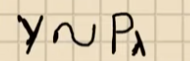 Y ~ P_λ